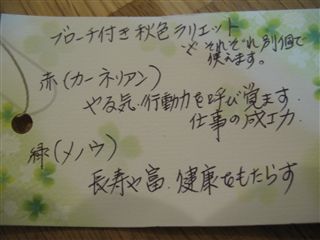 ブローチ付き秋色ラリエット
※それぞれ別個で
使えます。
赤(カーネリアン)
やる気・行動力を呼び覚ます.
仕事の成功.
緑(メノウ)
長寿や富.健康をもたらす